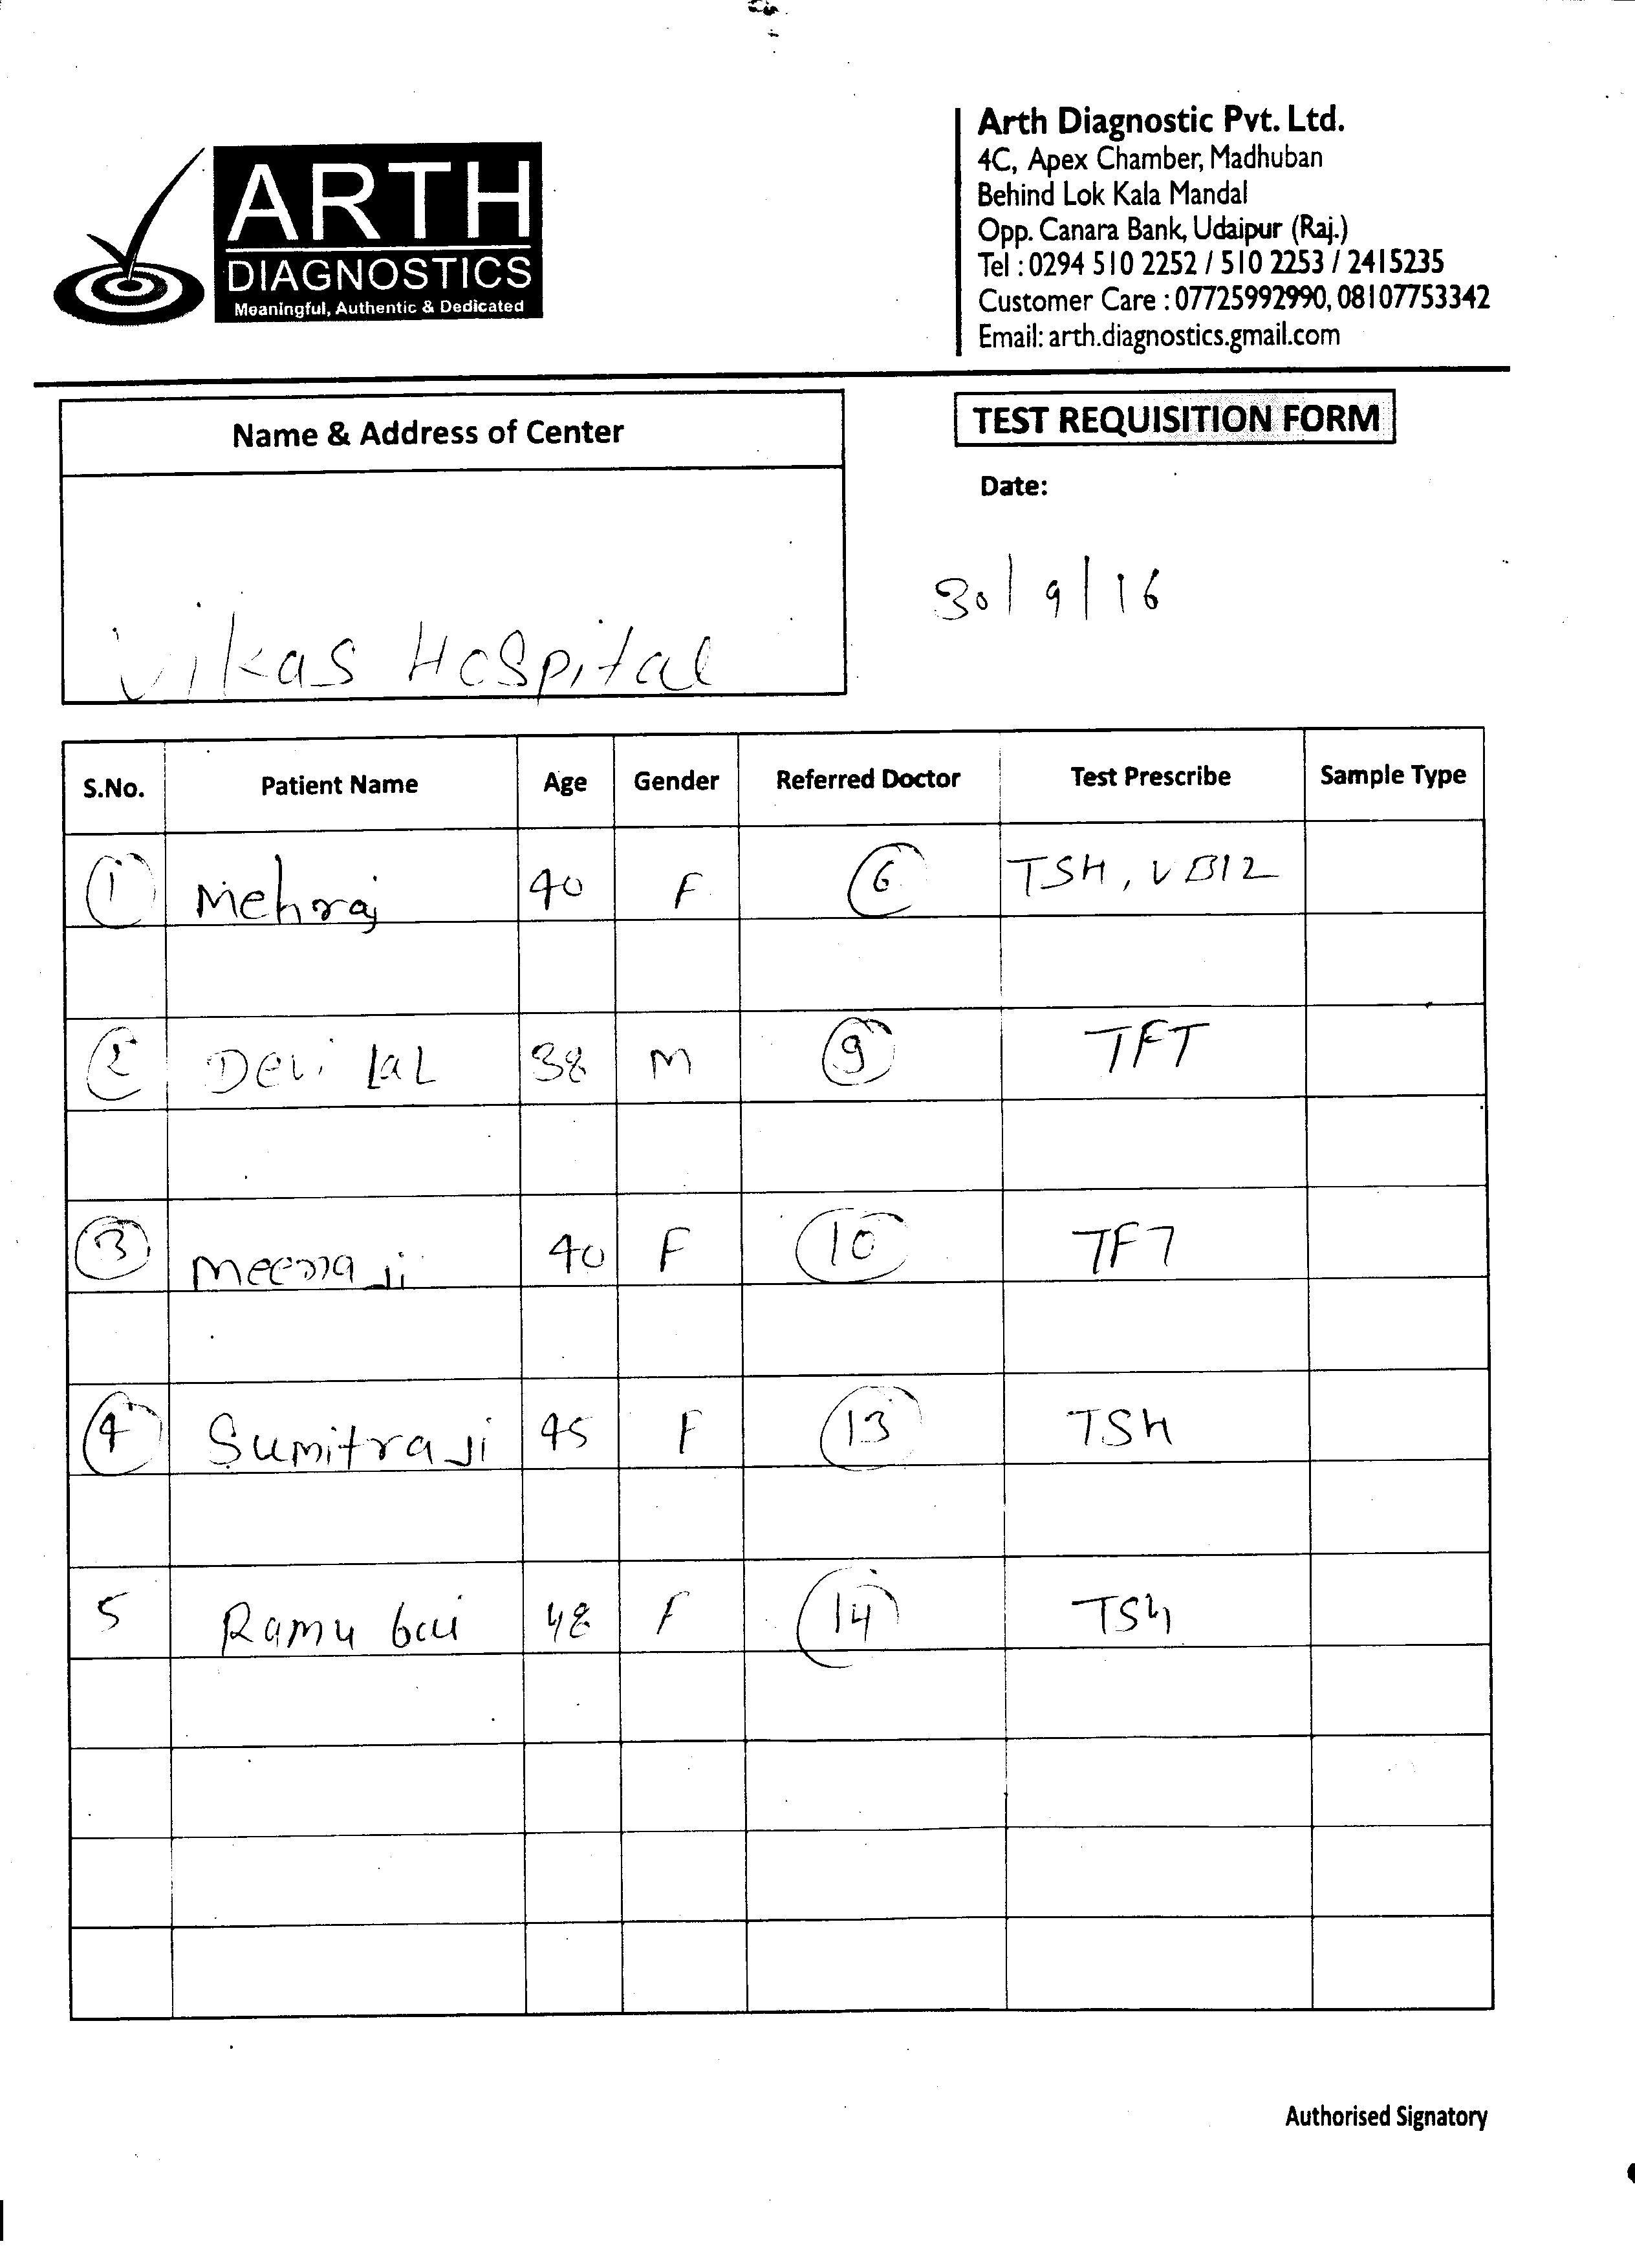 ARTH
DIAGNOSTICS
Meaningful, Authentic & Dedicated
Arth Diagnostic Pvt. Ltd.
4C, Apex Chamber, Madhuban
Behind Lok Kala Mandal
Opp. Canara Bank, Udaipur (Raj.)
Tel : 0294 510 2252 / 510 2253 / 2415235
Customer Care : 07725992990, 08107753342
Email: arth.diagnostics.gmail.com
Name & Address of Center
Vikas Hospital
TEST REQUISITION FORM
Date:
30/9/16
S.No. Patient Name Age Gender Referred Doctor Test Prescribe Sample Type
1 Mehraj 40 F 6 TSH, VB12
2 Devi Lal 38 M 9 TFT
3 Meena ji 40 F 10 TFT
4 Sumitra ji 45 F 13 TSH
5 Ramu bai 48 F 14 TSH
Authorised Signatory